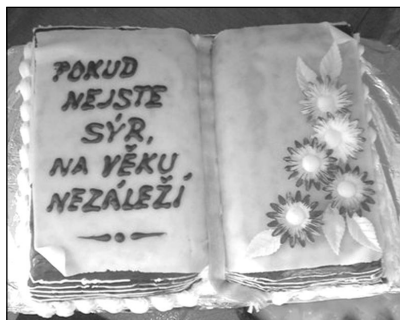 POKUD
NEJSTE
SÝR,
NA VĚKU
NEZÁLEŽÍ